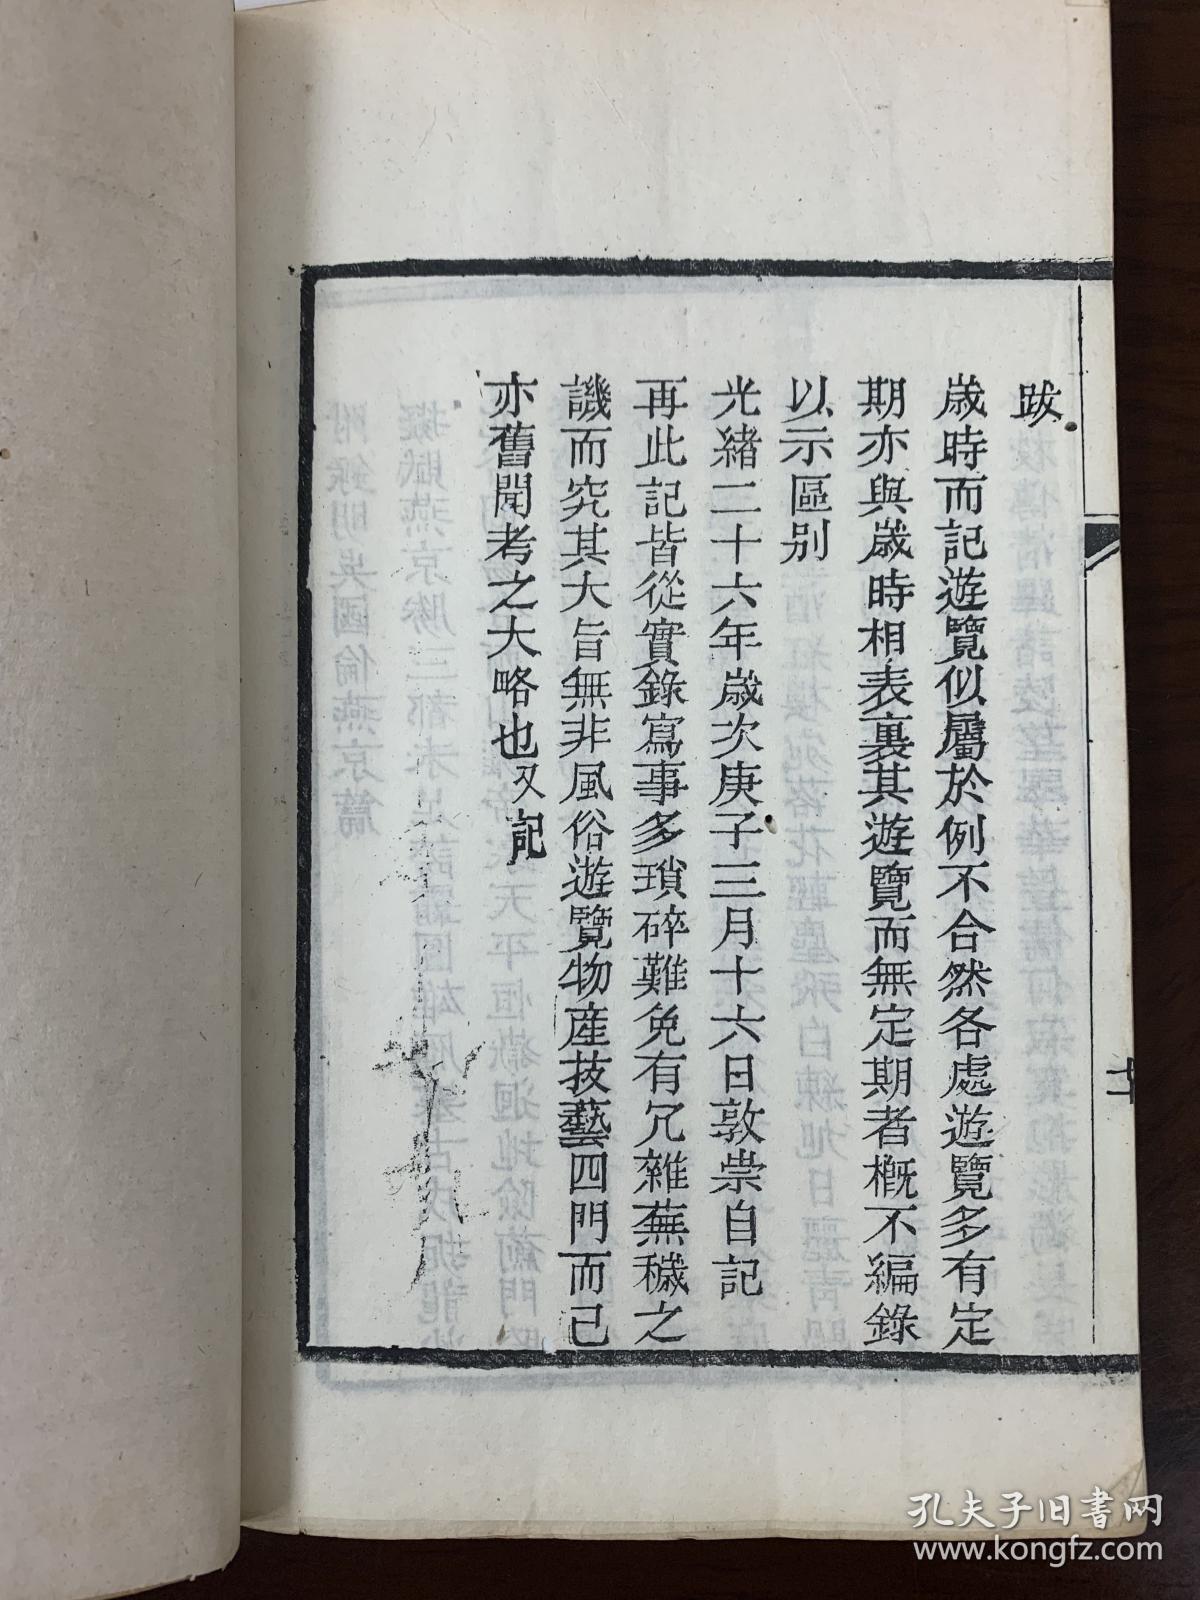 跋
歲時而記遊覽似屬於例不合然各處遊覽多有定
期亦與歲時相表裏其遊覽而無定期者概不編錄
以示區别
光緒二十六年歲次庚子三月十六日敦崇自記
再此記皆從實錄寫事多瑣碎難免有冗雜蕪穢之
譏而究其大旨無非風俗遊覽物產技藝四門而已
亦舊聞考之大略也又記
孔夫子旧书网
www.kongfz.com